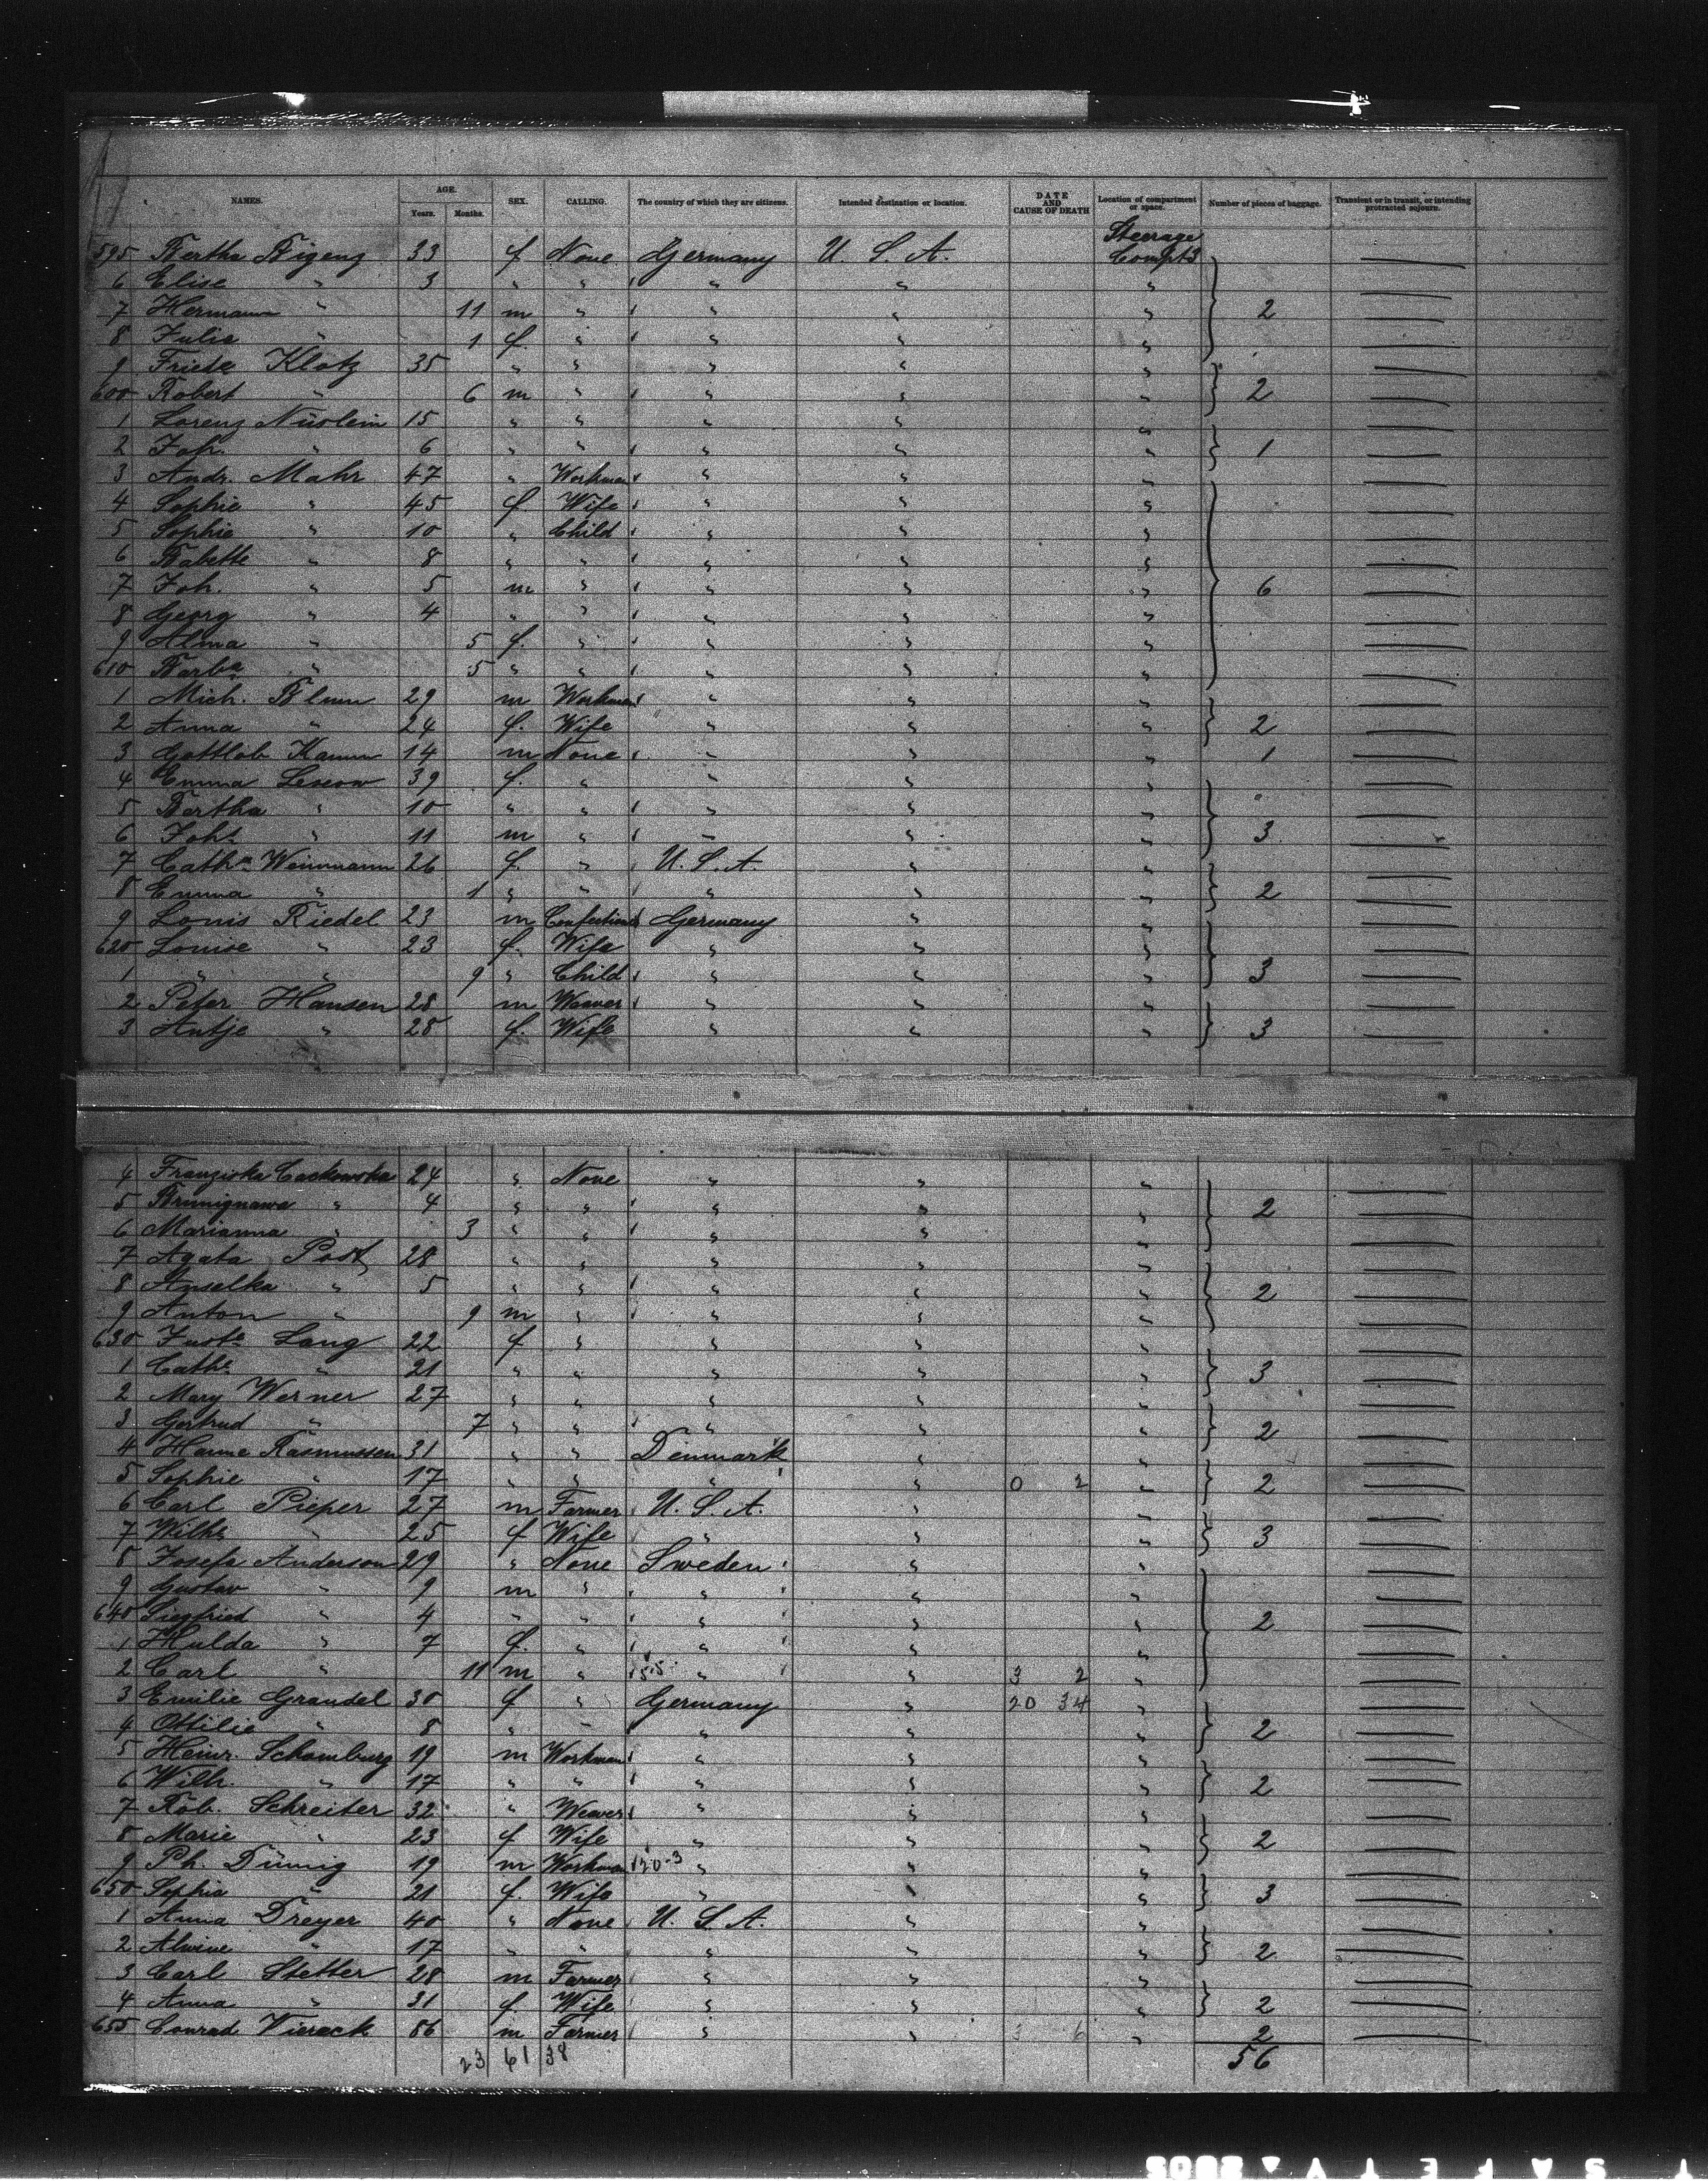 NAMES. AGE. SEX. CALLING. The country of which they are citizens. Intended destination or location. DATE AND CAUSE OF DEATH Location of compartment or space. Number of pieces of baggage. Transient or in transit, or intending protracted sojourn.
Years. Months.
Steerage
595 Bertha 33 f None Germany U. S. A. Compt 3
6 Elise " 3 " " " " "
7 Hermann " 11 m " " " " 2
8 Julia " 1 f. " " " "
9 Frieda Klotz 35 " " " " "
600 Robert " 6 m " " " " 2
1 Lorenz Nüslein 15 " " " " "
2 Joh. " 6 " " " " " 1
3 Andr. Mahr 47 " Workman " " "
4 Sophie " 45 f Wife " " "
5 Sophie " 10 " Child " " "
6 Babette " 8 " " " " "
7 Joh. " 5 m " " " " 6
8 Georg " 4 " " " " "
9 Alma " 5 f. " " " "
610 Barba " 5 " " " " "
1 Mich. Blum 29 m Workman " " "
2 Anna " 24 f. Wife " " " 2
3 Gottlob Kamm 14 m None " " " 1
4 Emma 39 f. " " " "
5 Bertha " 10 " " " " "
6 Johs " 11 m " " " " 3
7 Catha Weinmann 26 f. " U. S. A. " "
8 Emma " 1 " " " " " 2
9 Louis Riedel 23 m Germany " "
620 Louise " 23 f. Wife " " "
1 " " 9 " Child " " " 3
2 Peter Hansen 28 m Weaver " " "
3 Antje " 28 f. Wife " " " 3
4 Franziska 24 " None " " "
5 " 4 " " " " " 2
6 Marianna " 3 " " " " "
7 Agata Post 28 " " " " "
8 Anselka " 5 " " " " " 2
9 Anton " 9 m " " " "
630 Lang 22 f " " " "
1 Cathe " 21 " " " " " 3
2 Mary Werner 27 " " " " "
3 Gertrud " 7 " " " " " 2
4 Hanne Rasmussen 31 " " Denmark " "
5 Sophie " 17 " " " " 0 2 " 2
6 Carl Pieper 27 m Farmer U. S. A. " "
7 " 25 f Wife " " " 3
8 Josefa Anderson 29 " None Sweden " "
9 Gustav " 9 m " " " "
640 Siegfried " 4 " " " " " 2
1 Hulda " 7 f. " " " "
2 Carl " 11 m " " " 3 2 "
3 Emilie Grandel 30 f " Germany " 20 34 "
4 Ottilie " 8 " " " " " 2
5 Heinr. Schomburg 19 m Workman " " "
6 Wilh. " 17 " " " " " 2
7 Rob. Schreiter 32 " Weaver " " "
8 Marie " 23 f Wife " " " 2
9 Ph. 19 m Workman 20-3 " " "
650 Sophia " 21 f. Wife " " " 3
1 Anna Dreyer 40 " None U. S. A. " "
2 Alwine " 17 " " " " " 2
3 Carl Stetter 28 m Farmer " " "
4 Anna " 31 f. Wife " " " 2
655 Conrad Vierack 56 m Farmer " " 3 6 " 2
23 61 38 56